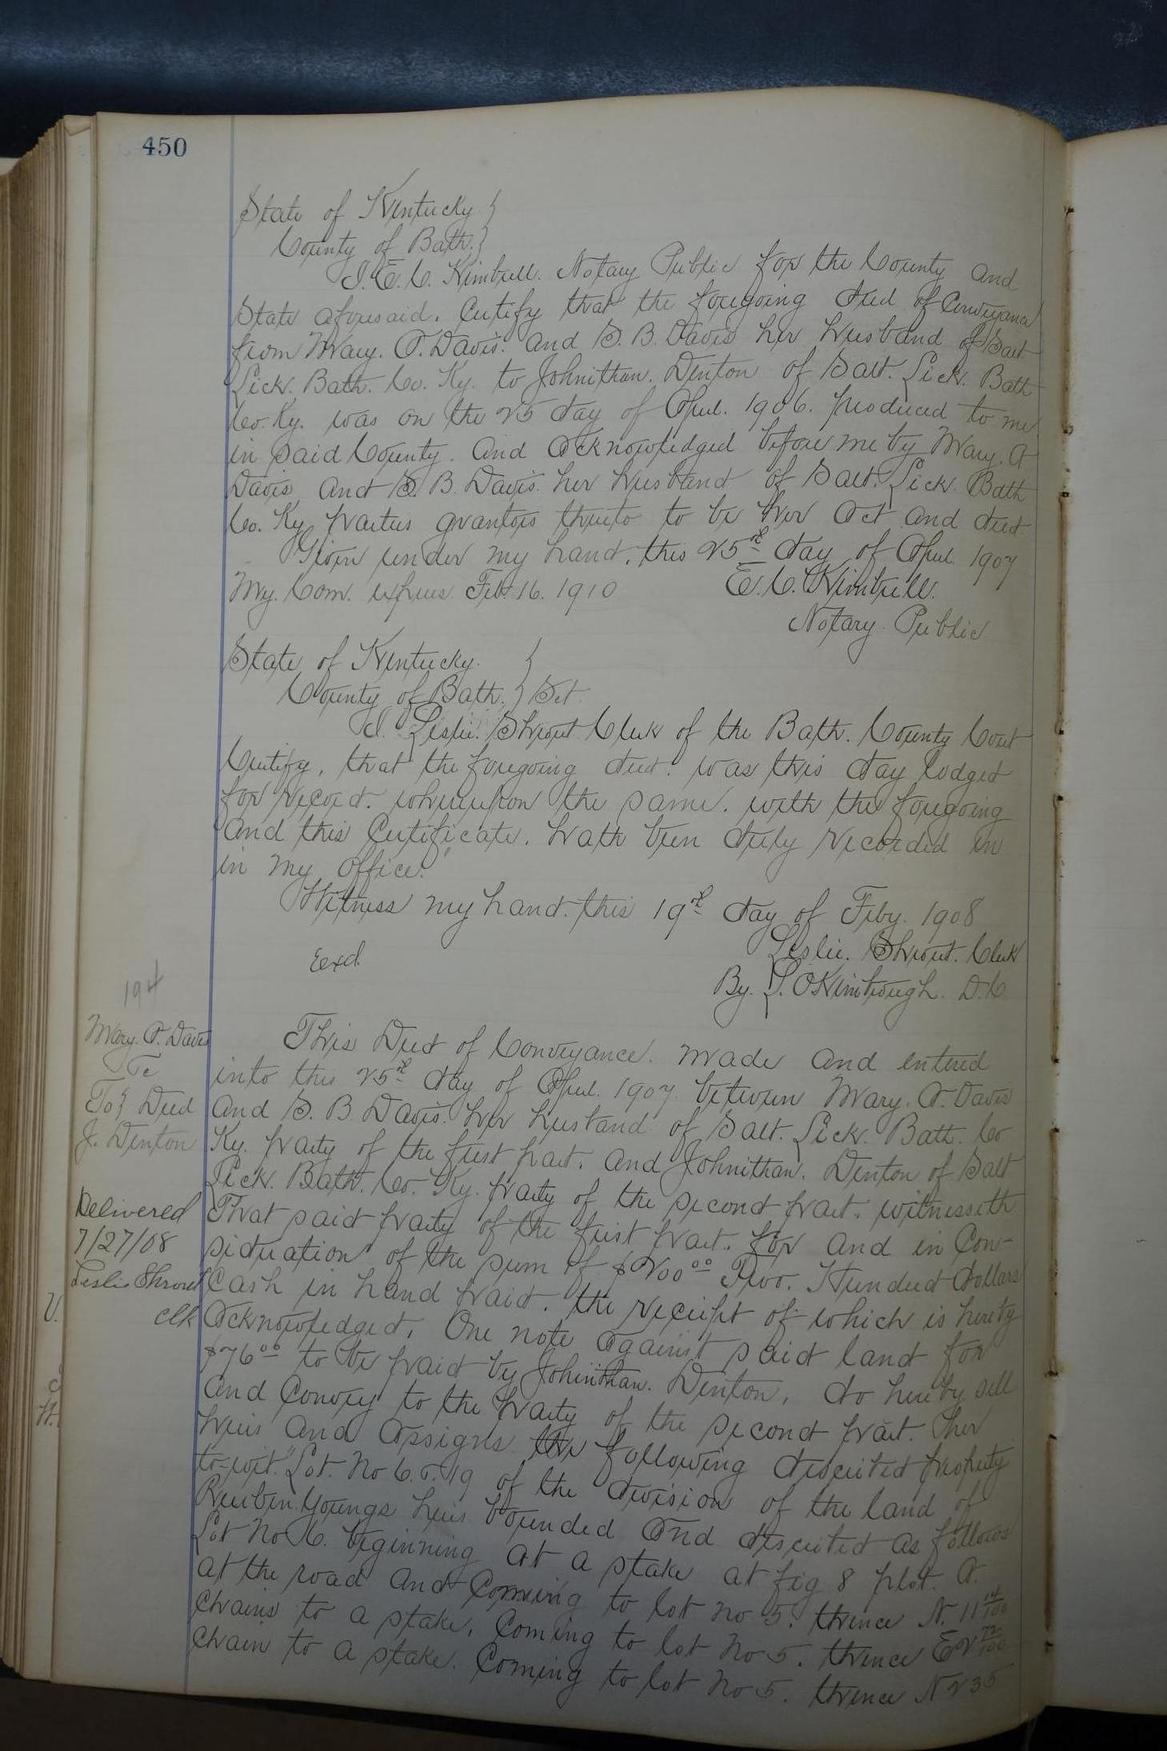 450
State of Kentucky }
County of Bath. }
I. E. C. Kimbrell. Notary Public for the County and
State aforesaid. Certify that the foregoing deed of Conveyance
from Mary. A. Davis. and S. B. Davis her husband of Salt
Lick. Bath. Co. Ky. to Johnithan. Denton of Salt. Lick. Bath
Co. Ky. was on the 25 day of April. 1906. produced to me
in said County. and acknowledged before me by Mary. A
Davis and S. B. Davis. her husband of Salt. Lick. Bath
Co. Ky. parties grantors thereto to be her act and deed
Given under my hand. this 25th day of April 1907
My. Com. expires Feb. 16. 1910 E. C. Kimbrell.
Notary Public
State of Kentucky. }
County of Bath. } Sct.
I. Leslie. Shrout Clerk of the Bath. County Court
Certify, that the foregoing deed. was this day lodged
for record. whereupon the same. with the foregoing
and this Certificate. hath been duly recorded in
in my office.
Witness my hand. this 19th day of Feby. 1908
Leslie. Shrout. Clerk
Exd. By. Kimbrough. D.C.
194
Mary. A. Davis
To } Deed
J. Denton
Delivered
7/27/08
Leslie Shrout
clk
This Deed of Conveyance. made and entered
into this 25th day of April. 1907 between Mary. A. Davis
and S. B. Davis. her husband of Salt. Lick. Bath. Co
Ky. party of the first part. and Johnithan. Denton of Salt
Lick. Bath. Co. Ky. party of the second part. witnesseth
That said party of the first part. for and in Con-
sideration of the sum of $200.00 Two. Hundred dollars
Cash in hand paid. the receipt of which is hereby
acknowledged. One note against said land for
$76.00 to be paid by Johnithan. Denton. do hereby sell
and Convey to the party of the second part. her
heirs and assigns the following described property
to-wit. Lot. No 6. 19 of the division of the land of
Reuben. Youngs heirs bounded and described as follows
Lot No 6. beginning at a stake at fig 8 plot. A.
at the road and Corning to lot no 5. thence N. 11
Chains to a stake. Corning to lot no 5. thence E 2 72/100
Chain to a stake. Corning to lot no 5. thence N 235